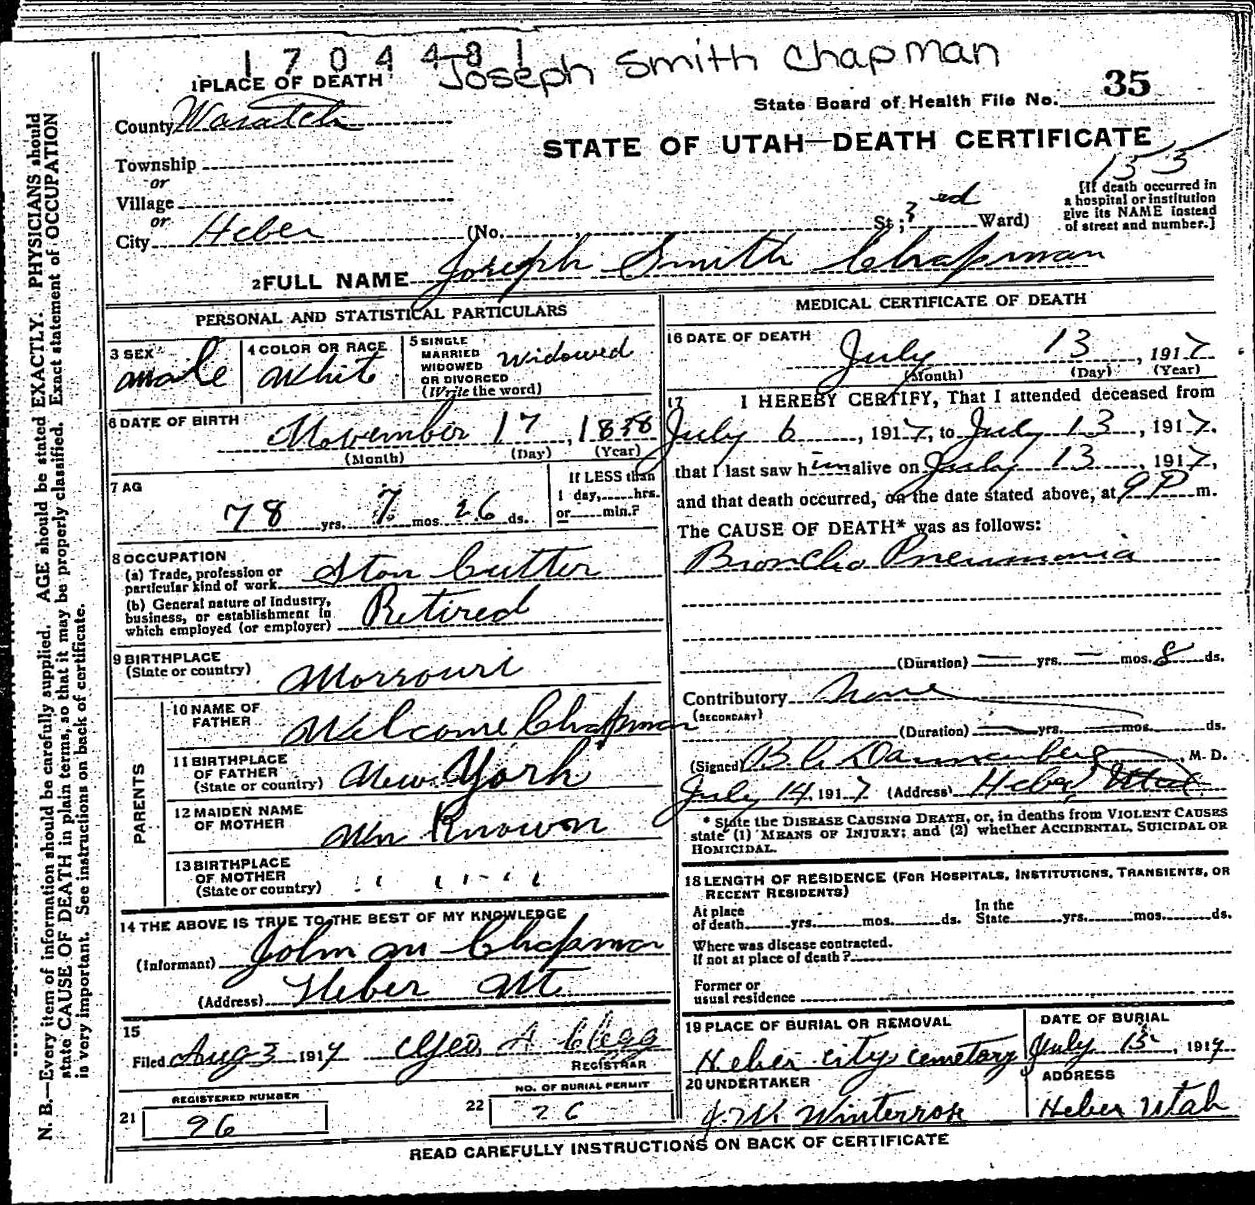 1 7 0 4 4 8 1
Joseph Smith Chapman
1 PLACE OF DEATH
State Board of Health File No. 35
County Wasatch
STATE OF UTAH—DEATH CERTIFICATE
Township
or
Village
or
City Heber (No. St.; 3 ed Ward)
155
[If death occurred in
a hospital or institution
give its NAME instead
of street and number.]
2 FULL NAME Joseph Smith Chapman
PERSONAL AND STATISTICAL PARTICULARS
3 SEX
Male
4 COLOR OR RACE
White
5 SINGLE
MARRIED
WIDOWED
OR DIVORCED
(Write the word)
Widowed
6 DATE OF BIRTH
November 17, 1838
(Month) (Day) (Year)
7 AG
78 yrs. 7 mos. 26 ds.
If LESS than
1 day, hrs.
or min.?
8 OCCUPATION
(a) Trade, profession or
particular kind of work Ston Cutter
(b) General nature of industry,
business, or establishment in
which employed (or employer) Retired
9 BIRTHPLACE
(State or country) Morrouri
PARENTS
10 NAME OF
FATHER Welcome Chapman
11 BIRTHPLACE
OF FATHER
(State or country) New York
12 MAIDEN NAME
OF MOTHER Un Known
13 BIRTHPLACE
OF MOTHER
(State or country) " " "
14 THE ABOVE IS TRUE TO THE BEST OF MY KNOWLEDGE
(Informant) John M Chapman
(Address) Heber Ut
15
Filed Aug 3 1917 Geo A Clegg
REGISTRAR
REGISTERED NUMBER
21 96
NO. OF BURIAL PERMIT
22 26
MEDICAL CERTIFICATE OF DEATH
16 DATE OF DEATH
July 13, 1917
(Month) (Day) (Year)
17 I HEREBY CERTIFY, That I attended deceased from
July 6, 1917, to July 13, 1917,
that I last saw him alive on July 13 1917,
and that death occurred, on the date stated above, at 9 P m.
The CAUSE OF DEATH* was as follows:
Broncho Pneumonia
(Duration) — yrs. — mos. 8 ds.
Contributory None
(SECONDARY)
(Duration) yrs. mos. ds.
(Signed) B. C. Dannenberg, M. D.
July 14, 1917 (Address) Heber, Utah
* State the DISEASE CAUSING DEATH, or, in deaths from VIOLENT CAUSES
state (1) MEANS OF INJURY; and (2) whether ACCIDENTAL, SUICIDAL OR
HOMICIDAL.
18 LENGTH OF RESIDENCE (FOR HOSPITALS, INSTITUTIONS, TRANSIENTS, OR
RECENT RESIDENTS)
At place
of death yrs. mos. ds.
In the
State yrs. mos. ds.
Where was disease contracted.
If not at place of death?
Former or
usual residence
19 PLACE OF BURIAL OR REMOVAL
Heber City Cemetary
DATE OF BURIAL
July 15, 1917
20 UNDERTAKER
J. W. Winterrose
ADDRESS
Heber Utah
READ CAREFULLY INSTRUCTIONS ON BACK OF CERTIFICATE
N. B.—Every item of information should be carefully supplied. AGE should be stated EXACTLY. PHYSICIANS should
state CAUSE OF DEATH in plain terms, so that it may be properly classified. Exact statement of OCCUPATION
is very important. See instructions on back of certificate.